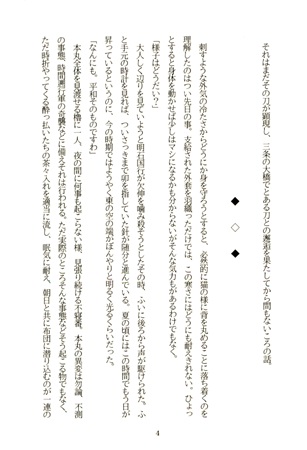 ◆　◇　◆
それはまだその刀が顕現し、三条の大橋でとある刀との邂逅を果たしてから間もないころの話。
刺すような外気の冷たさからどうにか身を守ろうとすると、必然的に猫の様に背を丸めることに落ち着くのを
理解したのはつい先日の事。支給された外套を羽織っただけでは、この寒さにはどうにも耐えきれない。ひょっ
とすると身体を動かせば少しはマシになるかも分からないがそんな気力もがあるわけでもなく、
「様子はどうだい？」
大人しく辺りを見ていようと明石国行が欠伸を噛み殺そうとしたその時、ふいに後ろから声が駆けられた。ふ
と手元の時計を見れば、ついさっきまで卯を指していた針が随分と進んでいる。夏の頃にはこの時間でもう日が
昇っているというのに、今の時期ではようやく東の空の端がぼんやりと明るく光るくらいだった。
「なんにも。平和そのものですわ」
本丸全体を見渡せる櫓に一人、夜の間に何事も起こらない様、見張り続ける不寝番。本丸の異変は勿論、不測
の事態、時間遡行軍の奇襲などに備えそれは行われる。ただ実際のところそんな事態などそう起こる物でもなく、
ただ時折やってくる酔っ払いたちの茶々入れを適当に流し、眠気に耐え、朝日と共に布団に潜り込むのが一連の
4